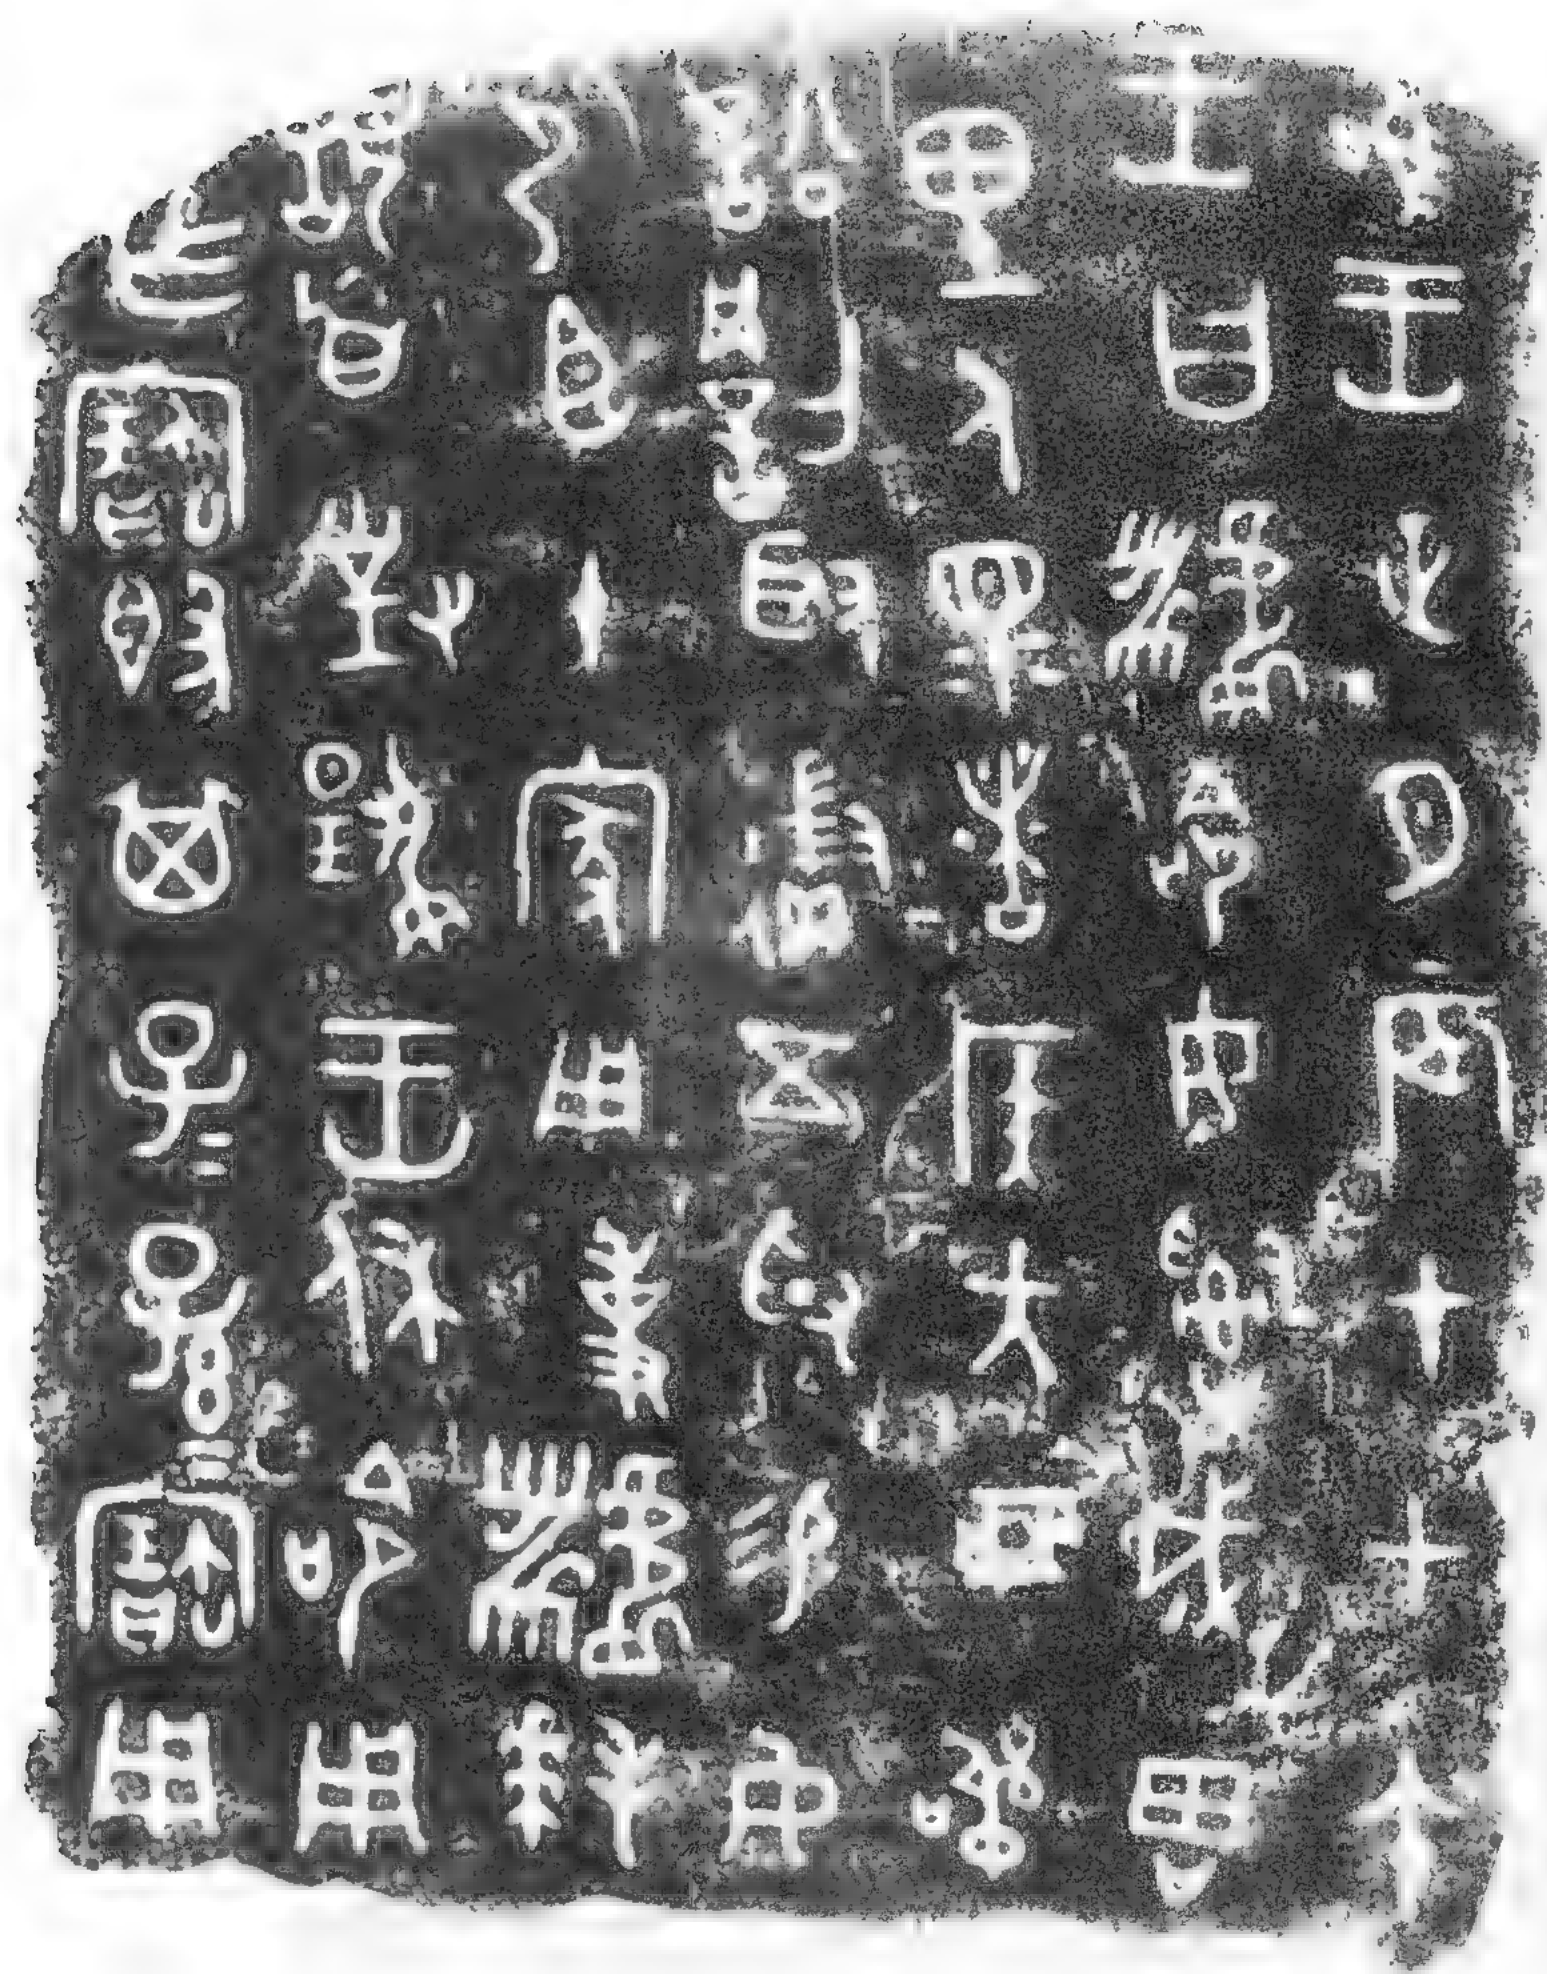 隹王正月辰才甲午
王曰命女𤔲成周
里人眔者侯大亞訊
訟罰取徵五寽易女
尸臣十家用事拜
𩒨首對揚王休命用
乍寶簋其子=孫=寶用